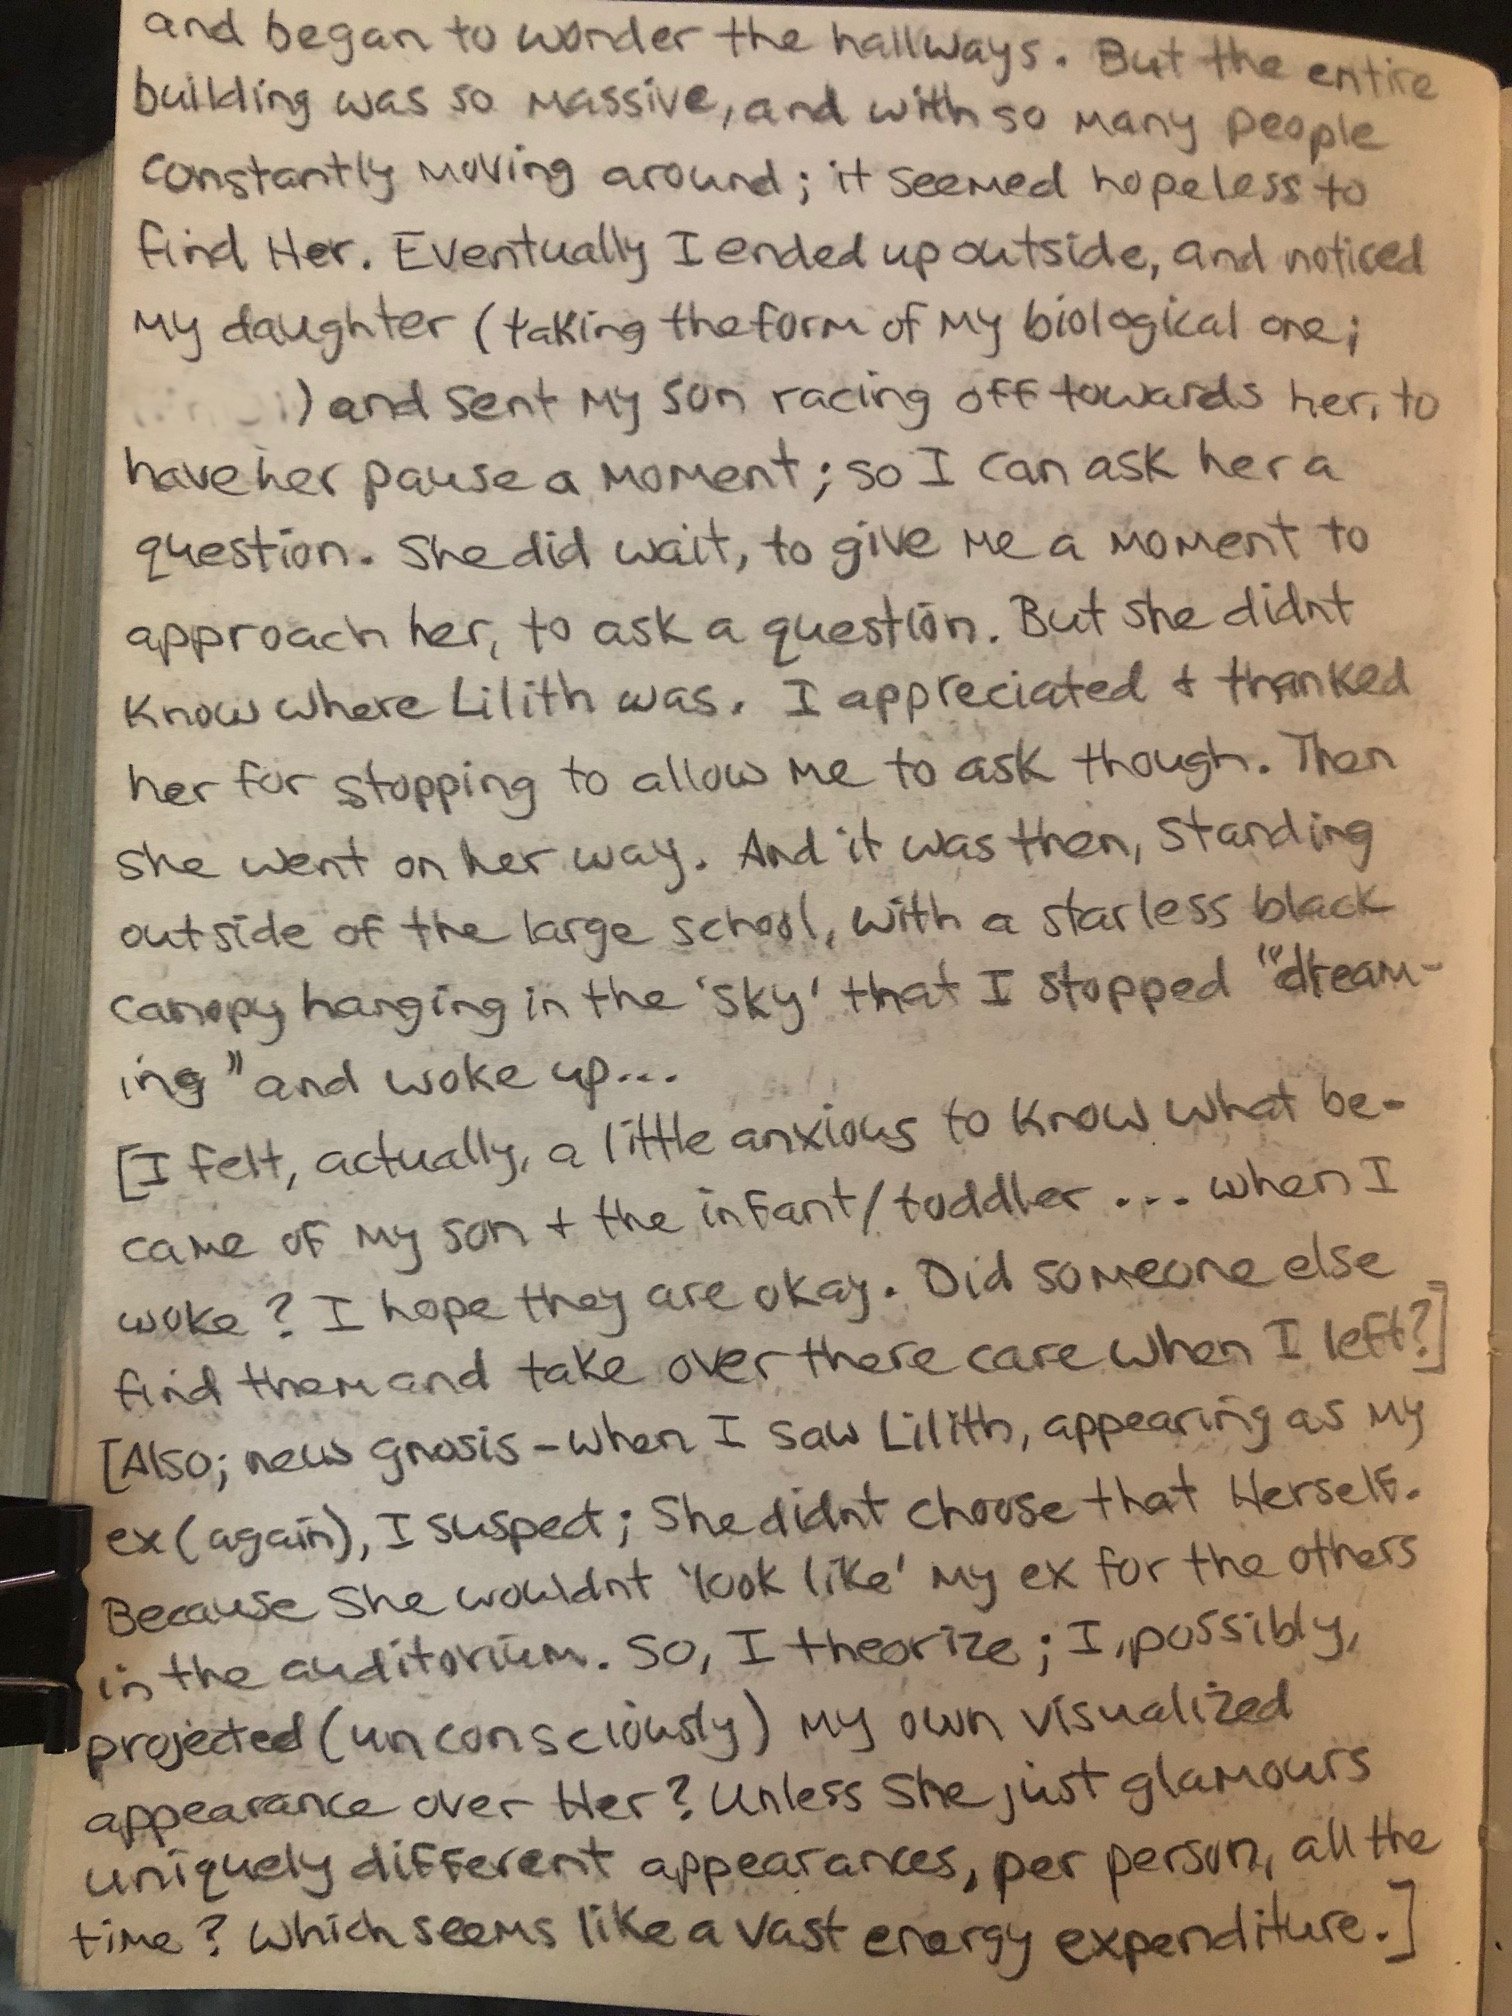 and began to wonder the hallways. But the entire
building was so massive, and with so many people
constantly moving around; it seemed hopeless to
find Her. Eventually I ended up outside, and noticed
my daughter (taking the form of my biological one;
) and sent my son racing off towards her, to
have her pause a moment; so I can ask her a
question. She did wait, to give me a moment to
approach her, to ask a question. But she didnt
know where Lilith was. I appreciated + thanked
her for stopping to allow me to ask though. Then
she went on her way. And it was then, standing
outside of the large school, with a starless black
canopy hanging in the 'sky' that I stopped "dream-
ing" and woke up...
[I felt, actually, a little anxious to know what be-
came of my son + the infant/toddler ... when I
woke? I hope they are okay. Did someone else
find them and take over there care when I left?]
[Also; new gnosis - when I saw Lilith, appearing as my
ex (again), I suspect; She didnt choose that Herself.
Because She wouldnt 'look like' my ex for the others
in the auditorium. So, I theorize; I, possibly,
projected (unconsciously) my own visualized
appearance over Her? Unless She just glamours
uniquely different appearances, per person, all the
time? Which seems like a vast energy expenditure.]